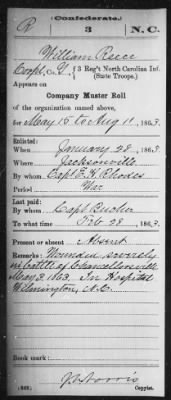 (Confederate.)
R 3 N.C.
William Reece
Corpl, Co. G, 3 Reg't North Carolina Inf.
(State Troops.)
Appears on
Company Muster Roll
of the organization named above,
for May 15 to Aug 11, 1863.
Enlisted:
When January 28, 1863
Where Jacksonville
By whom Capt E. H. Rhodes
Period War
Last paid:
By whom Capt
To what time Feb 28, 1863.
Present or absent Absent
Remarks: Wounded severely
in battle of Chancellorsville
May 3, 1863. In Hospital
Wilmington, N.C.
Book mark:
J. Norris
Copyist.